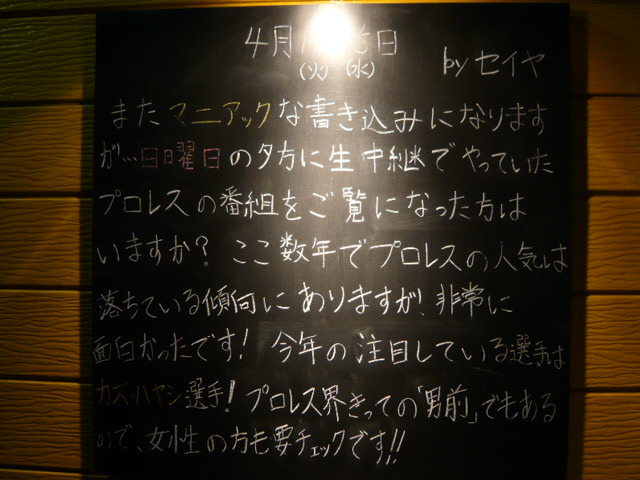 4月 5日
(火) (水)
by セイヤ
またマニアックな書き込みになります
が…日曜日の夕方に生中継でやっていた
プロレスの番組をご覧になった方は
いますか? ここ数年でプロレスの人気は
落ちている傾向にありますが、非常に
面白かったです! 今年の注目している選手は
カズ・ハヤシ選手! プロレス界きっての「男前」でもある
ので、女性の方も要チェックです!!